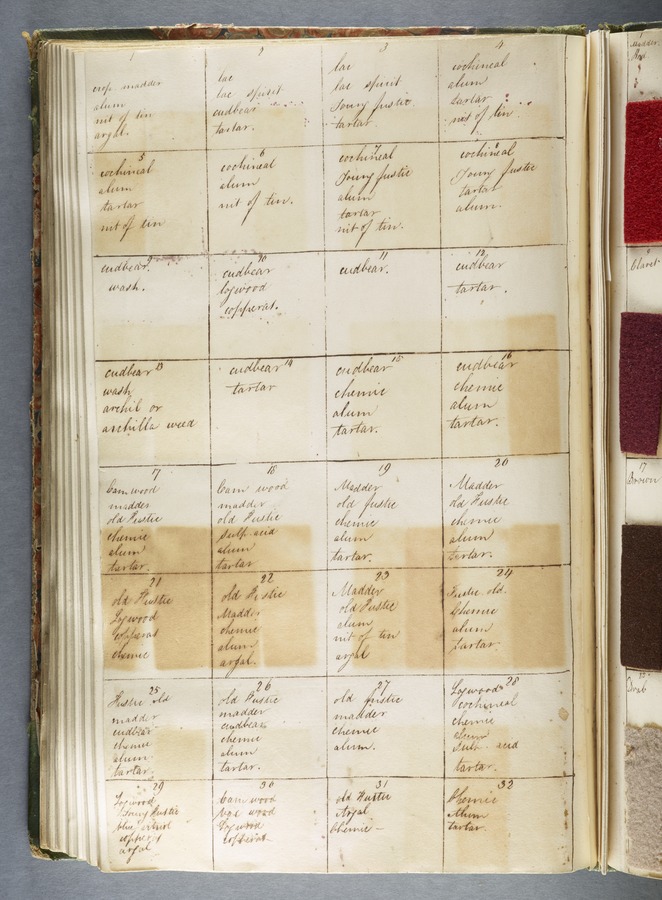 1
crop madder
alum
nit of tin
argal.
2
lac
lac spirit
cudbear
tartar.
3
lac
lac spirit
Young fustic
tartar
4
cochineal
alum
tartar
nit of tin
5
cochineal
alum
tartar
nit of tin
6
cochineal
alum
nit of tin.
7
cochineal
Young fustic
alum
tartar
nit of tin.
8
cochineal
Young fustic
tartar
alum.
9
cudbear.
wash.
10
cudbear
logwood
copperas.
11
cudbear.
12
cudbear
tartar.
13
cudbear
wash
archil or
archilla weed
14
cudbear
tartar
15
cudbear
chemic
alum
tartar.
16
cudbear
chemic
alum
tartar.
17
Cam wood
madder
old Fustic
chemic
alum
tartar.
18
Cam wood
madder
old Fustic
sulph. acid
alum
tartar
19
Madder
old fustic
chemic
alum
tartar.
20
Madder
old Fustic
chemic
alum
tartar.
21
old Fustic
Logwood
copperas
chemic
22
old Fustic
Madder
chemic
alum
argal.
23
Madder
old Fustic
alum
nit of tin
argal
24
Fustic old.
Chemic
alum
tartar.
25
Fustic old
madder
cudbear
chemic
alum
tartar.
26
old Fustic
madder
cudbear
chemic
alum
tartar.
27
old fustic
madder
chemic
alum.
28
Logwood
cochineal
chemic
alum
sulp. acid
tartar.
29
Logwood
Young Fustic
blue vitriol
copperas
argal
30
Cam wood
wood
Logwood
copperas
31
old Fustic
Argal
Chemic
32
Chemic
Alum
tartar
Madder
Claret
17
Brown
Drab